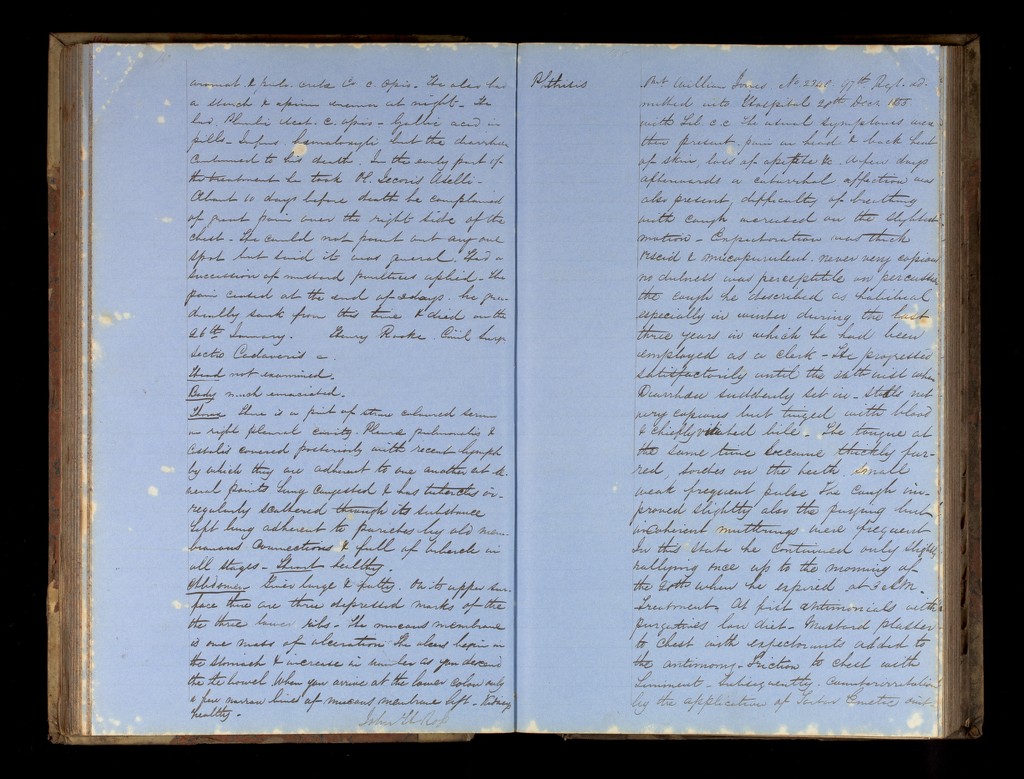 a starch & opium enema at night - He
had Plumbi Acet. c. Opio - Gallic acid in
pills - Infus. but the diarrhœa
Continued to his death. In the early part of
the treatment he took Ol. Jecoris Aselli -
About 10 days before death he complained
of great pain over the right side of the
chest - He could not point out any one
spot but said it was general. Had a
succession of mustard poultices applied - The
pain ceased at the end of 2 days. he gra-
dually sank from this time & died on the
26th January. Henry Rooke. Civil Surg
Sectio Cadaveris
Head not examined.
Body much emaciated.
Thorax there is a pint of straw coloured serum
in right pleural cavity. Pleura pulmonalis &
costalis covered posteriorly with recent lymph
by which they are adherent to one another at se-
veral points Lung congested & has tubercles ir-
regularly scattered through its substance
Left lung adherent to parietes by old mem-
branous connections & full of tubercle in
all stages - Heart healthy.
Abdomen Liver large & fatty. On its upper sur-
face there are three depressed marks of the
the three lower ribs - The mucous membrane
is one mass of ulceration The ulcers begin in
the stomach & increase in number as you descend
the bowel When you arrive at the lower colon only
a few narrow lines of mucous membrane left - Kidneys
healthy.
Phthisis
Pvt William Jones No. 97th Regt. ad-
mitted into Hospital 20th Decr 1855
with Feb. C. C The usual symptoms were
then present, pain in head & back heat
of skin loss of appetite &c. A few days
afterwards a catarrhal affection was
also present, difficulty of breathing
with cough increased on the slightest
motion - Expectoration was thick
viscid & mucopurulent. never very copious
no dulness was perceptible on percussion
the cough he described as habitual
especially in winter during the last
three years in which he had been
employed as a clerk - He progressed
satisfactorily until the inst when
Diarrhœa suddenly set in - stools not
very copious but tinged with blood
& chiefly vitiated bile - The tongue at
the same time became thickly fur-
red, sordes on the teeth, small
weak frequent pulse The cough im-
proved slightly also the purging but
incoherent mutterings were frequent
In this state he continued only slightly
rallying once up to the morning of
the when he expired at 3 A.M.
Treatment. At first antimonials with
purgatives low diet - Mustard plaster
to chest with expectorants added to
the antimony - Friction to chest with
Liniment - Subsequently. Counterirritation
by the application of Tartar Emetic oint-